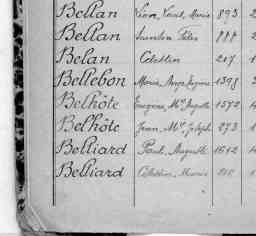 Bellan Léon, Paul, Marie 893 2
Bellan 888 2
Belan Célestin 247 1
Bellebon Marie, Ange, Eugène 1398 3
Belhôte Eugène, Mie Auguste 1572 4
Belhôte Jean, Mie Joseph 273 1
Belliard Paul, Auguste 1612 4
Belliard Célestin, Marie 1